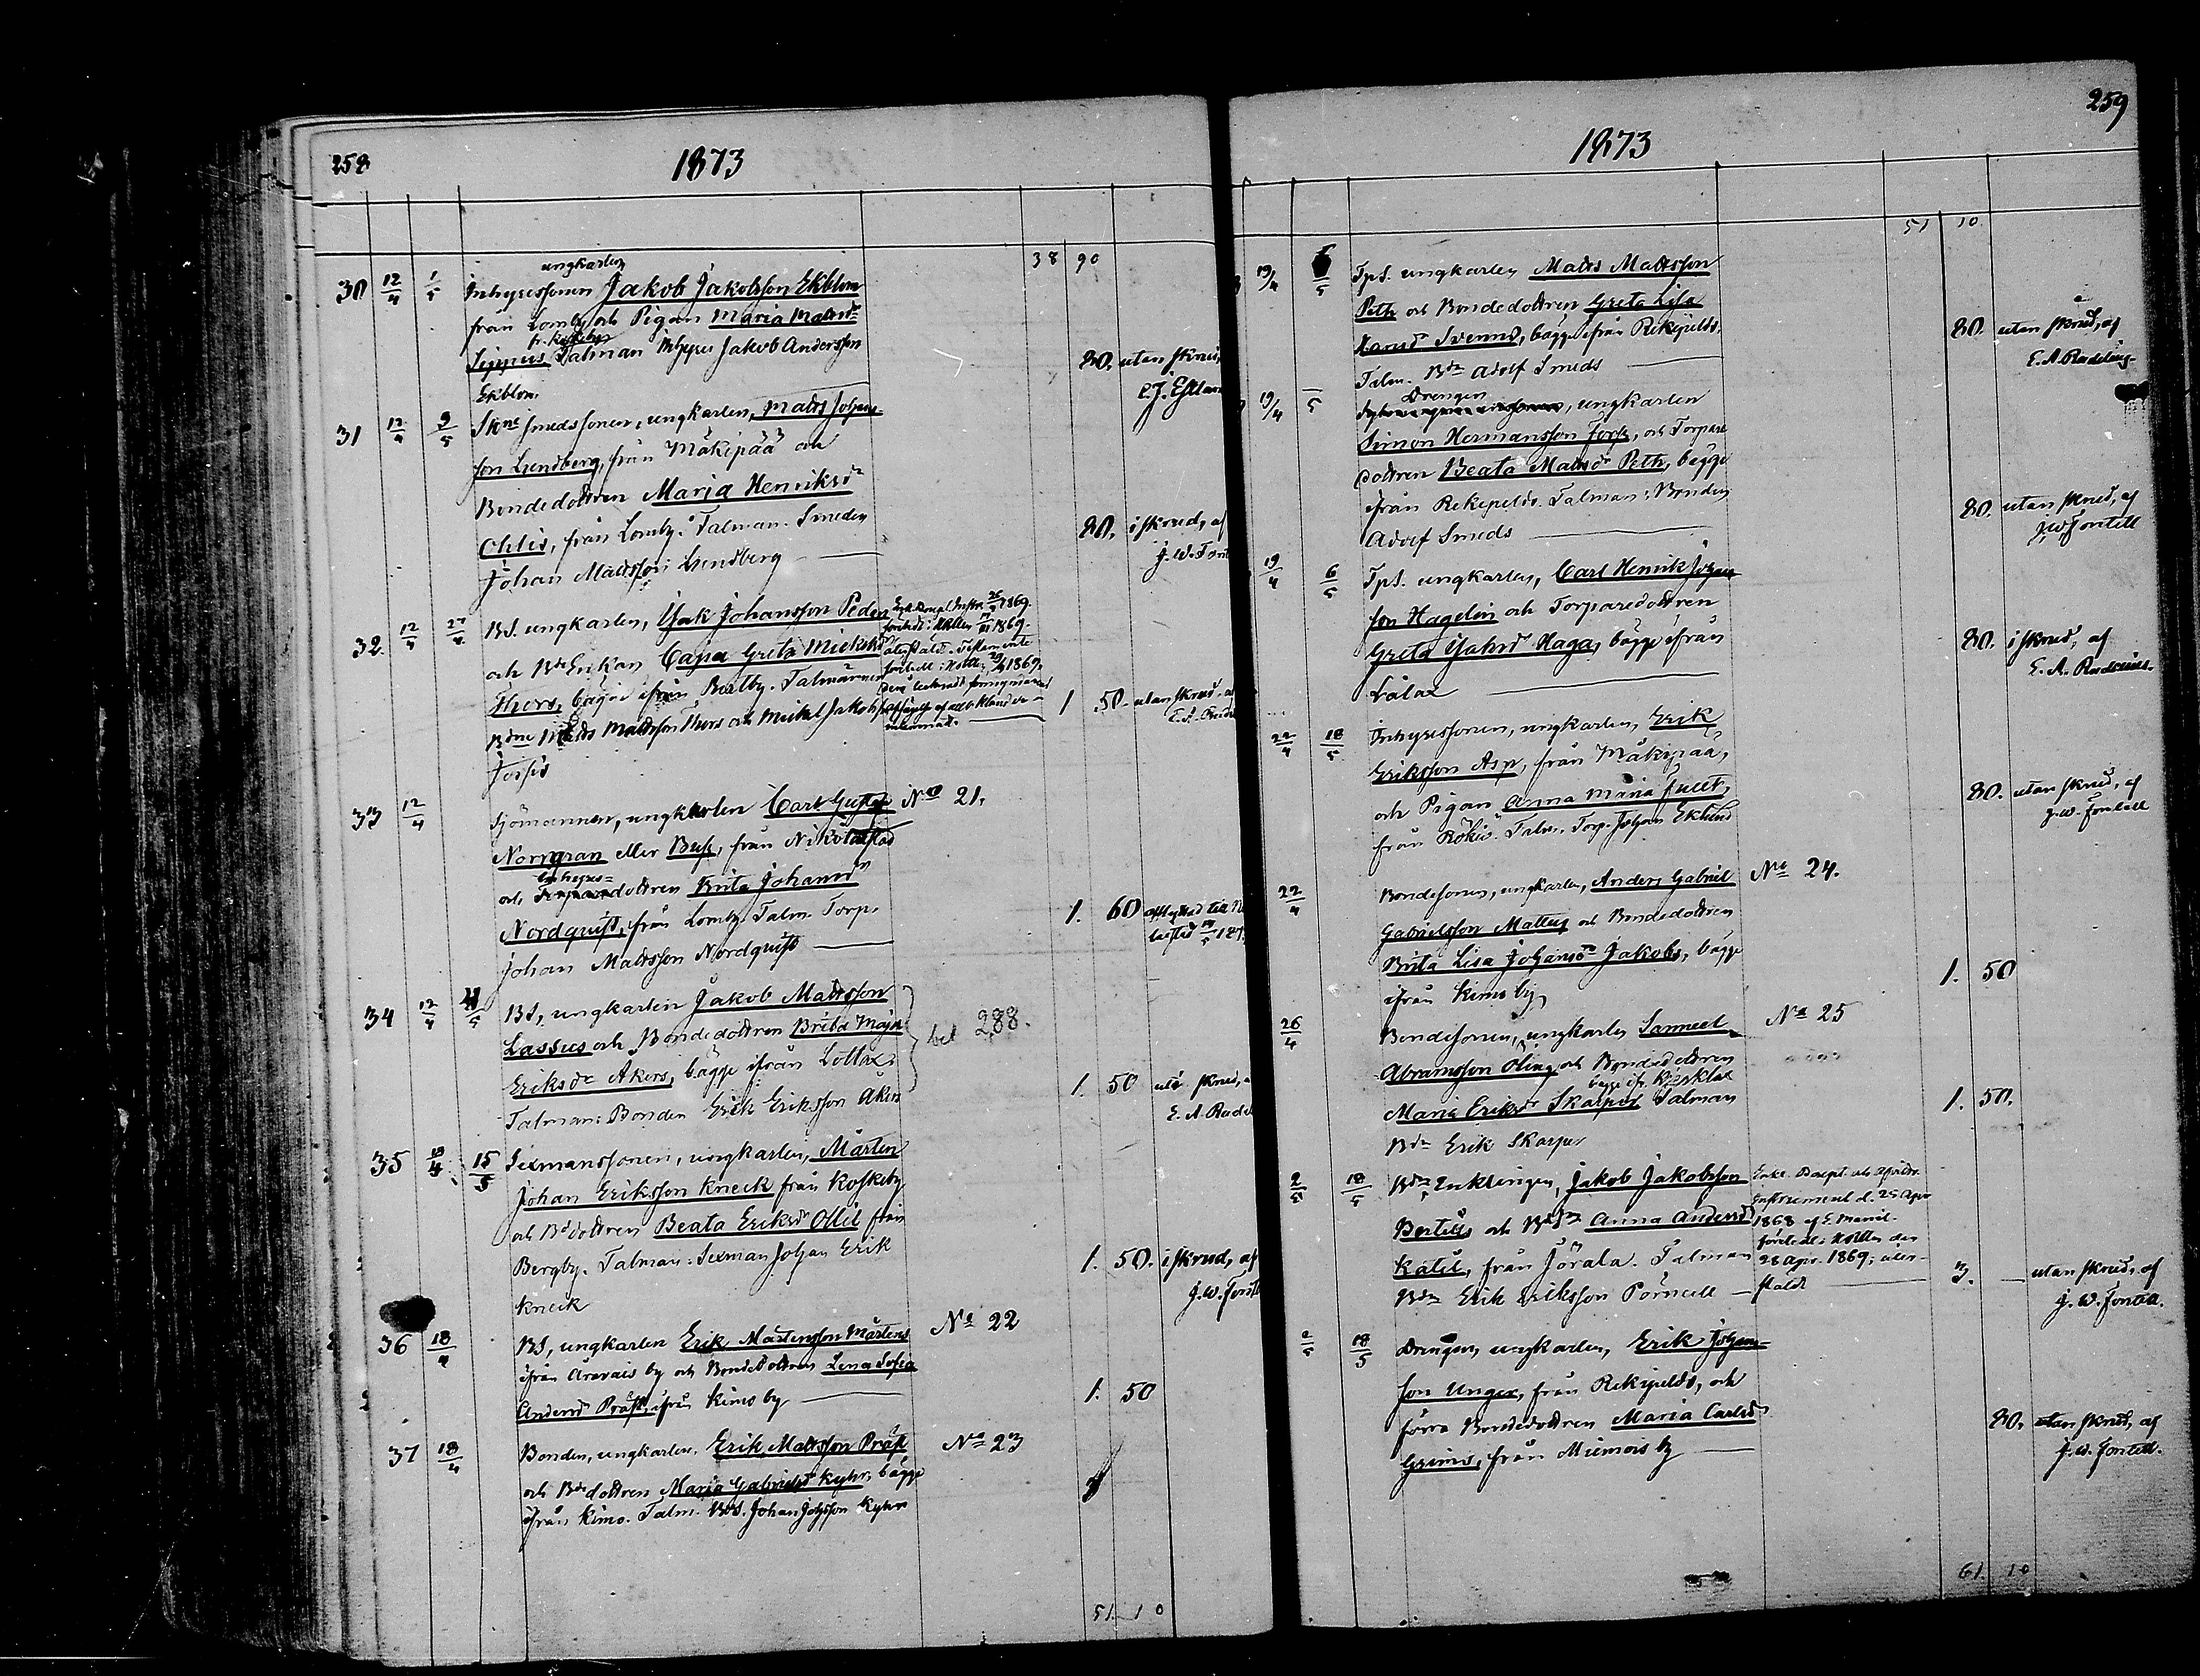 258
1873
38 90
30 12/4 1/5 ungkarlen
Inhysessonen Jakob Jakobsson Ekblom
från Lomby och Pigan Maria Mattsdr
Sippus Talman Inhyses Jakob Andersson
Ekblom
80. utan skrud,
31 12/4 9/5 smedssonen, ungkarlen, Matts Johans-
son Lundberg, från Mäkipää och
Bondedottren Maria Henriksdr
Ohlis, från Lomby. Talman. Smeden
Johan Mattsson Lundberg
80. i skrud, af
J. W. Font
32 12/4 27/4 BS. ungkarlen, Isak Johansson Peder
och Bde Enkan Cajsa Greta Mickelsdr
Thors, bägge ifrån Bertby. Talmännen
Bdne Matts Mattsson Thors och Mickel Jakobsson
1 50. utan skrud. af
33 12/4 Sjömannen, ungkarlen Carl Gustaf No 21.
Norrgran eller Busk, från Nikolaistad
Inhyses=
och dottren Brita Johansdr
Nordquist, från Lomby. Talm. Torp.
Johan Mattsson Nordquist
1. 60
34 12/4 BS, ungkarlen Jakob Mattsson
Lassus och Bondedottren Brita Maja
Eriksdr Åkers, bägge ifrån Lottax.
Talman: Bonden Erik Eriksson Åkers
288.
1. 50 utï skrud, a
E. A. Rade
35 18/4 15/5 Sexmanssonen, ungkarlen, Mårten
Johan Eriksson Kneck från Koskeby
och Bddottren Beata Eriksdr Ollil från
Bergby. Talman: Sexman Johan Erik
Kneck
1. 50. i skrud, af
J. W. Font
36 18/4 BS, ungkarlen Erik Mårtensson Mårtens No 22
ifrån Oravais by och Bondedottren Lena Sofia
Andersdr Präst, ifrån Kimo by
1. 50
37 18/4 Bonden, ungkarlen, Erik Mattsson Präst No 23
och Bdedottren Maria Gabrielsdr Kyhn, bägge
ifrån Kimo. Talm. BdS. Johan Johsson Kyhn
51 10
259
1873
51 10
19/4 6/5 TpS. ungkarlen Matts Mattsson
Peth och Bondedottren Greta Lisa
Hansdr Svenns, bägge ifrån Rekipeldo.
Talm. Bdn Adolf Smeds
80. utan skrud, af
19/4 Drengen
, ungkarlen
Simon Hermansson Forss, och Torpare
dottren Beata Mattsdr Peth, bägge
ifrån Rekipeldo. Talman: Bonden
Adolf Smeds
80. utan skrud, af
J. W. Fontell
19/4 6/5 TpS. ungkarlen, Carl Henrik Johans-
son Hagelin och Torparedottren
Greta Isaksdr Haga, bägge ifrån
Lålax
80. i skrud, af
22/4 18/5 Inhysessonen, ungkarlen, Erik
Eriksson Asp, från Mäkipää,
och Pigan Anna Maria
från Rökiö. Talm. Torp. Johan Eklund
80. utan skrud, af
J. W. Fontell
22/4 Bondesonen, ungkarlen, Anders Gabriel No 24.
Gabrielsson Mattus och Bondedottren
Brita Lisa Johansdr Jakobs, bägge
ifrån Kimo by
1. 50
26/4 Bondesonen, ungkarlen Samuel No 25
Abramsson Oling och Bondedottren
bägge ifr. Kärklax
Maria Eriksdr Skarpas Talman
Bdn Erik Skarpas
1. 50.
2/5 18/5 Bdn Enklingen, Jakob Jakobsson
Bertils och Anna Andersdr
Katil, från Jörala. Talman
Bdn Erik Eriksson Pörnull
1868
28 apr. 1869; åter-
ställdt
3. — utan skrud, af
J. W. Fontell.
2/5 18/5 Drengen, ungkarlen, Erik Johans-
son Unger, från Rekipeldo, och
förra Bondedottren Maria Carlsdr
Grims, från Miemois by
80. utan skrud, af
J. W. Fontell.
61. 10